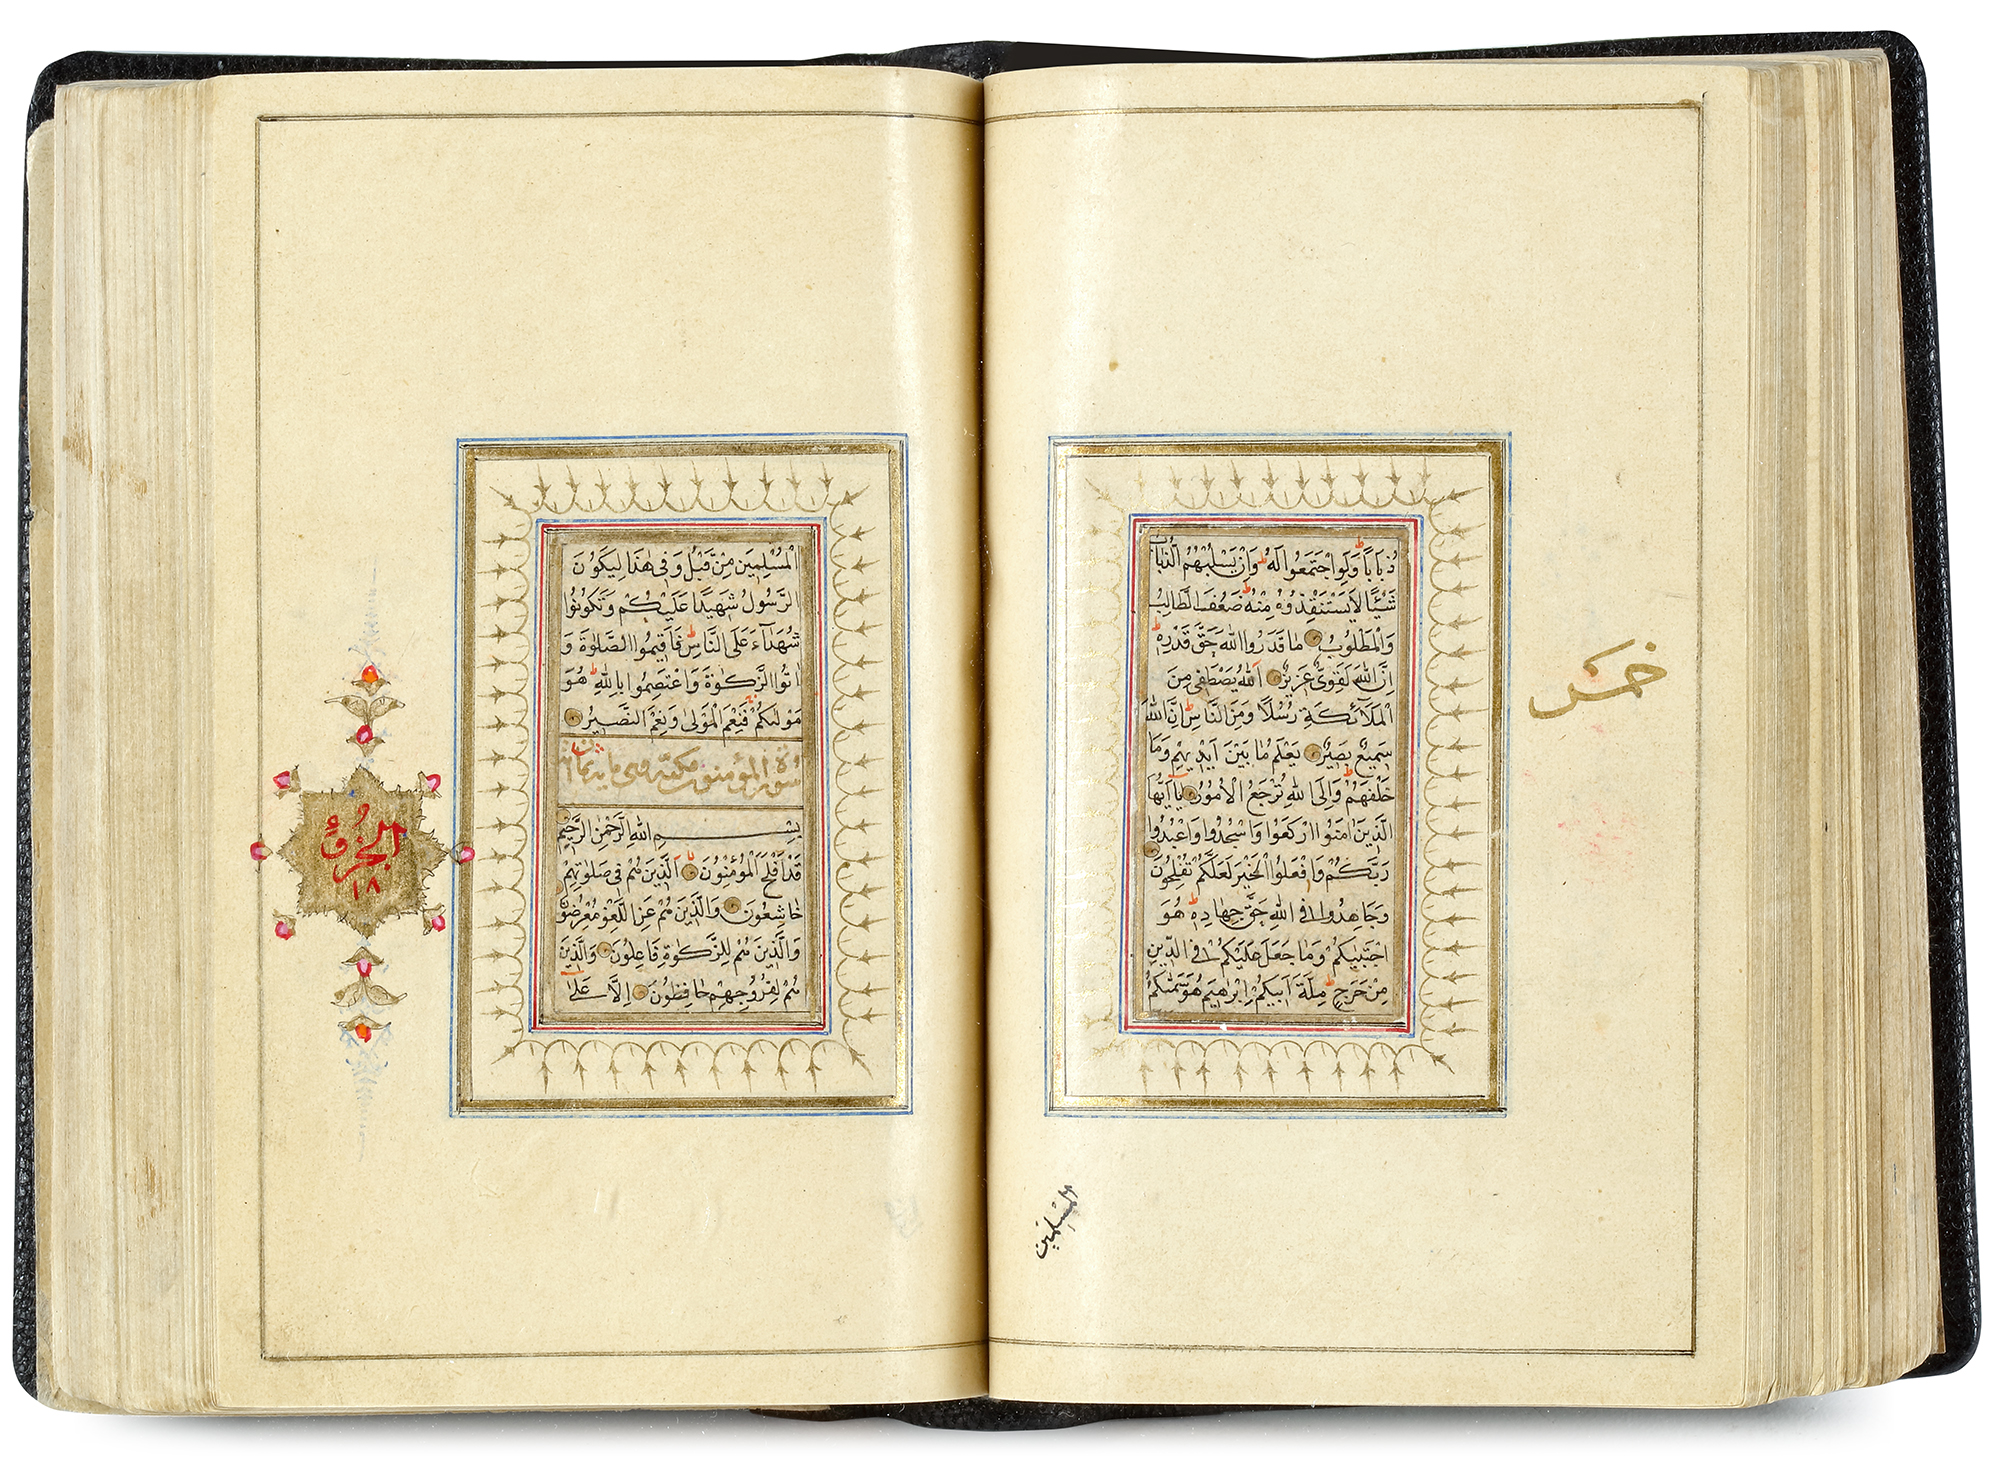 ذُبَابًا وَلَوِ اجْتَمَعُوا لَهُ ط وَاِنْ يَسْلُبْهُمُ الذُّبَابُ
شَيْئًا لَا يَسْتَنْقِذُوهُ مِنْهُ ط ضَعُفَ الطَّالِبُ
وَالْمَطْلُوبُ مَا قَدَرُوا اللهَ حَقَّ قَدْرِهِ ط
اِنَّ اللهَ لَقَوِيٌّ عَزِيزٌ اَللهُ يَصْطَفِي مِنَ
الْمَلَائِكَةِ رُسُلًا وَمِنَ النَّاسِ ط اِنَّ اللهَ
سَمِيعٌ بَصِيرٌ يَعْلَمُ مَا بَيْنَ اَيْدِيهِمْ وَمَا
خَلْفَهُمْ ط وَاِلَى اللهِ تُرْجَعُ الْاُمُورُ يَا اَيُّهَا
الَّذِينَ اٰمَنُوا ارْكَعُوا وَاسْجُدُوا وَاعْبُدُوا
رَبَّكُمْ وَافْعَلُوا الْخَيْرَ لَعَلَّكُمْ تُفْلِحُونَ
وَجَاهِدُوا فِي اللهِ حَقَّ جِهَادِهِ ط هُوَ
اجْتَبٰيكُمْ وَمَا جَعَلَ عَلَيْكُمْ فِي الدِّينِ
مِنْ حَرَجٍ ط مِلَّةَ اَبِيكُمْ اِبْرٰهِيمَ هُوَ سَمّٰيكُمُ
خمس
الْمُسْلِمِينَ
الْمُسْلِمِينَ مِنْ قَبْلُ وَفِي هٰذَا لِيَكُونَ
الرَّسُولُ شَهِيدًا عَلَيْكُمْ وَتَكُونُوا
شُهَدَاءَ عَلَى النَّاسِ فَاَقِيمُوا الصَّلٰوةَ وَ
اٰتُوا الزَّكٰوةَ وَاعْتَصِمُوا بِاللهِ ط هُوَ
مَوْلٰيكُمْ فَنِعْمَ الْمَوْلٰى وَنِعْمَ النَّصِيرُ
سورة المؤمنون مكية وهى ماية
بِسْمِ اللهِ الرَّحْمٰنِ الرَّحِيمِ
قَدْ اَفْلَحَ الْمُؤْمِنُونَ اَلَّذِينَ هُمْ فِي صَلَاتِهِمْ
خَاشِعُونَ وَالَّذِينَ هُمْ عَنِ اللَّغْوِ مُعْرِضُونَ
وَالَّذِينَ هُمْ لِلزَّكٰوةِ فَاعِلُونَ وَالَّذِينَ
هُمْ لِفُرُوجِهِمْ حَافِظُونَ اِلَّا عَلٰى
الجزؤ
١٨